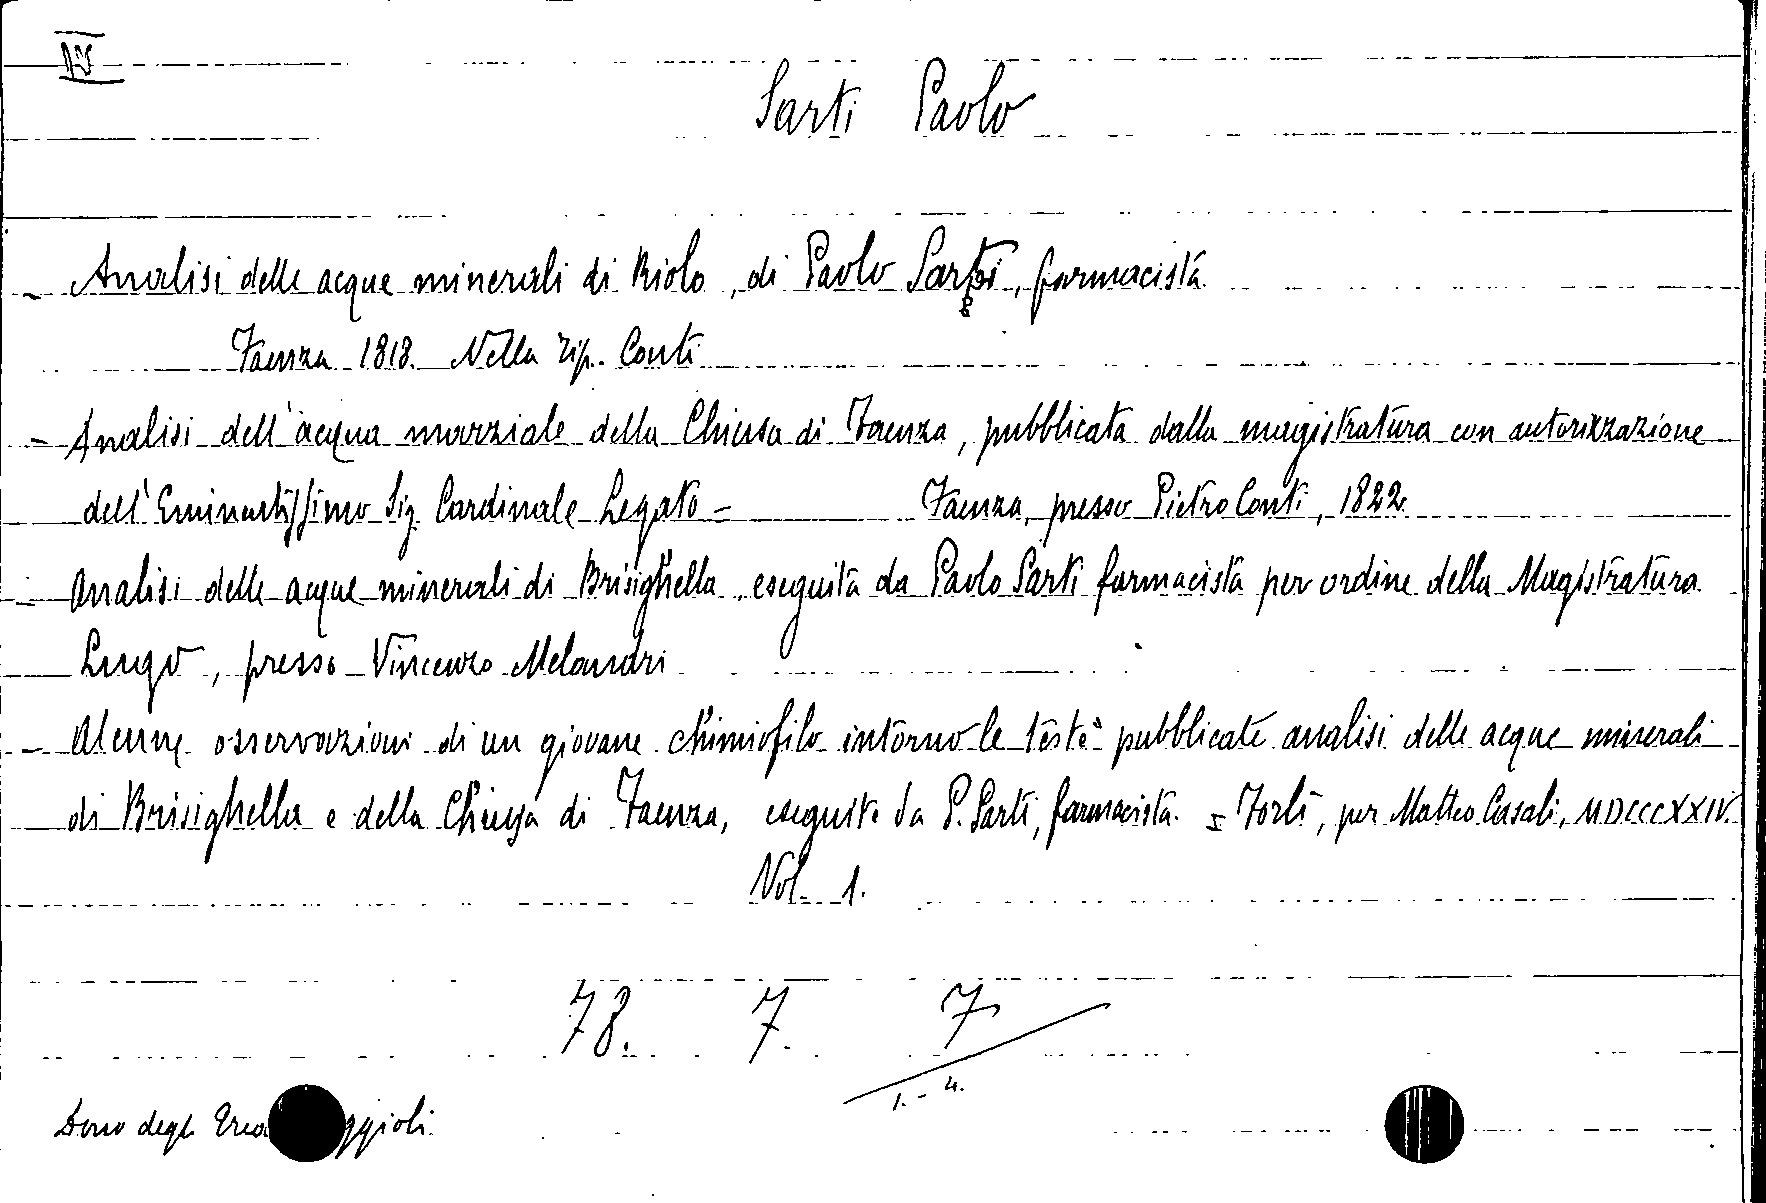 IV
Sarti Paolo
- Analisi delle acque minerali di Riolo, di Paolo Sarti, farmacista
Faenza 1818. Nella Tip. Conti
- Analisi dell'acqua marziale della Chiusa di Faenza, pubblicata dalla magistratura con autorizzazione
dell'Eminentissimo Sig. Cardinale Legato = Faenza, presso Pietro Conti, 1822.
- Analisi delle acque minerali di Brisighella eseguita da Paolo Sarti farmacista per ordine della Magistratura
Lugo, presso Vincenzo Melandri
- Alcune osservazioni di un giovane chimiofilo intorno le testè pubblicate analisi delle acque minerali
di Brisighella e della Chiusa di Faenza, eseguite da P. Sarti, farmacista. = Forlì, per Matteo Casali, MDCCCXXIV.
Vol. 1.
78. 7. 7
1. - 4.
Dono degli ggioli